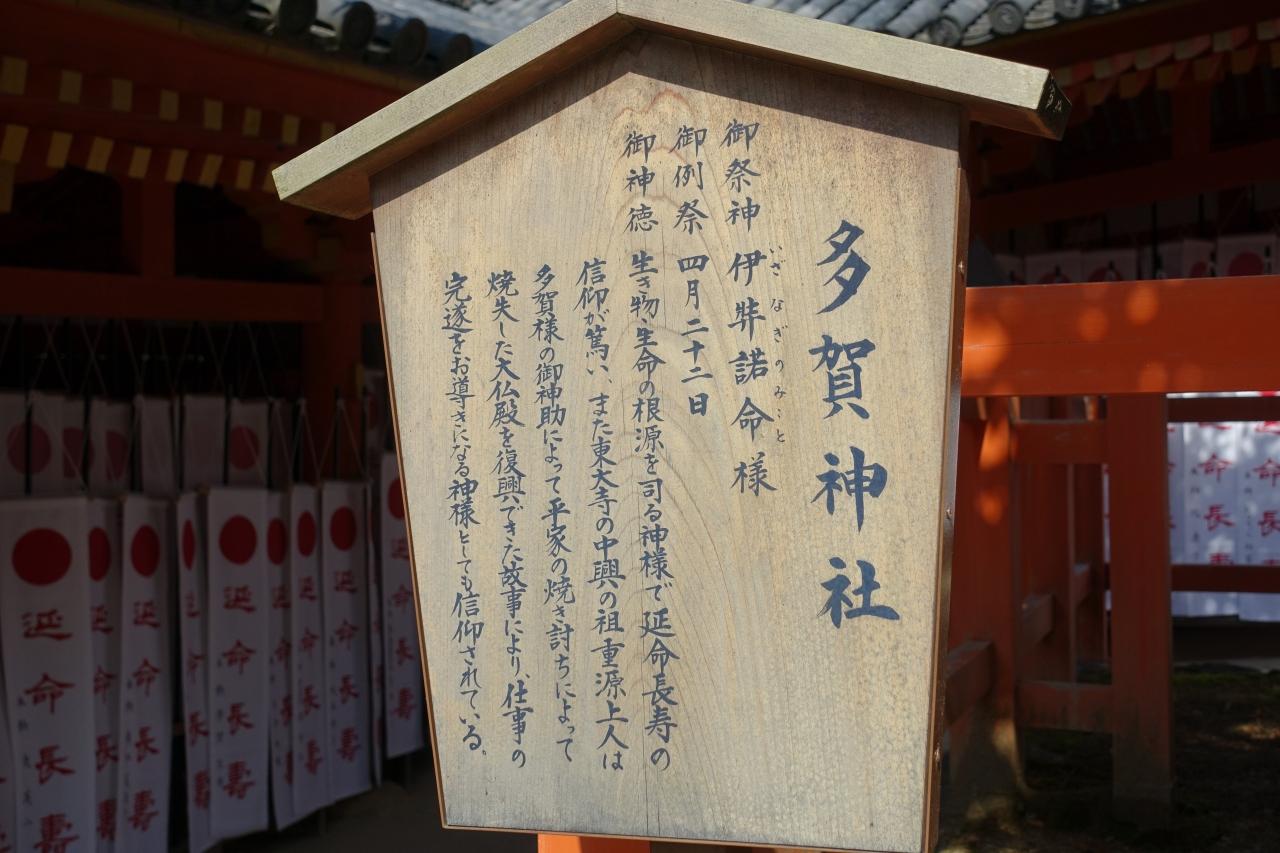 多賀神社
御祭神 伊弉諾命様
いざなぎのみこと
御例祭 四月二十二日
御神徳 生き物・生命の根源を司る神様で延命長寿の
信仰が篤い、また東大寺の中興の祖重源上人は
多賀様の御神助によって平家の焼き討ちによって
焼失した大仏殿を復興できた故事により、仕事の
完遂をお導きになる神様としても信仰されている。
延命長寿
延命長寿
延命長寿
延命長寿
延命長寿
延命長寿
延命長寿
命長寿
命長
命長